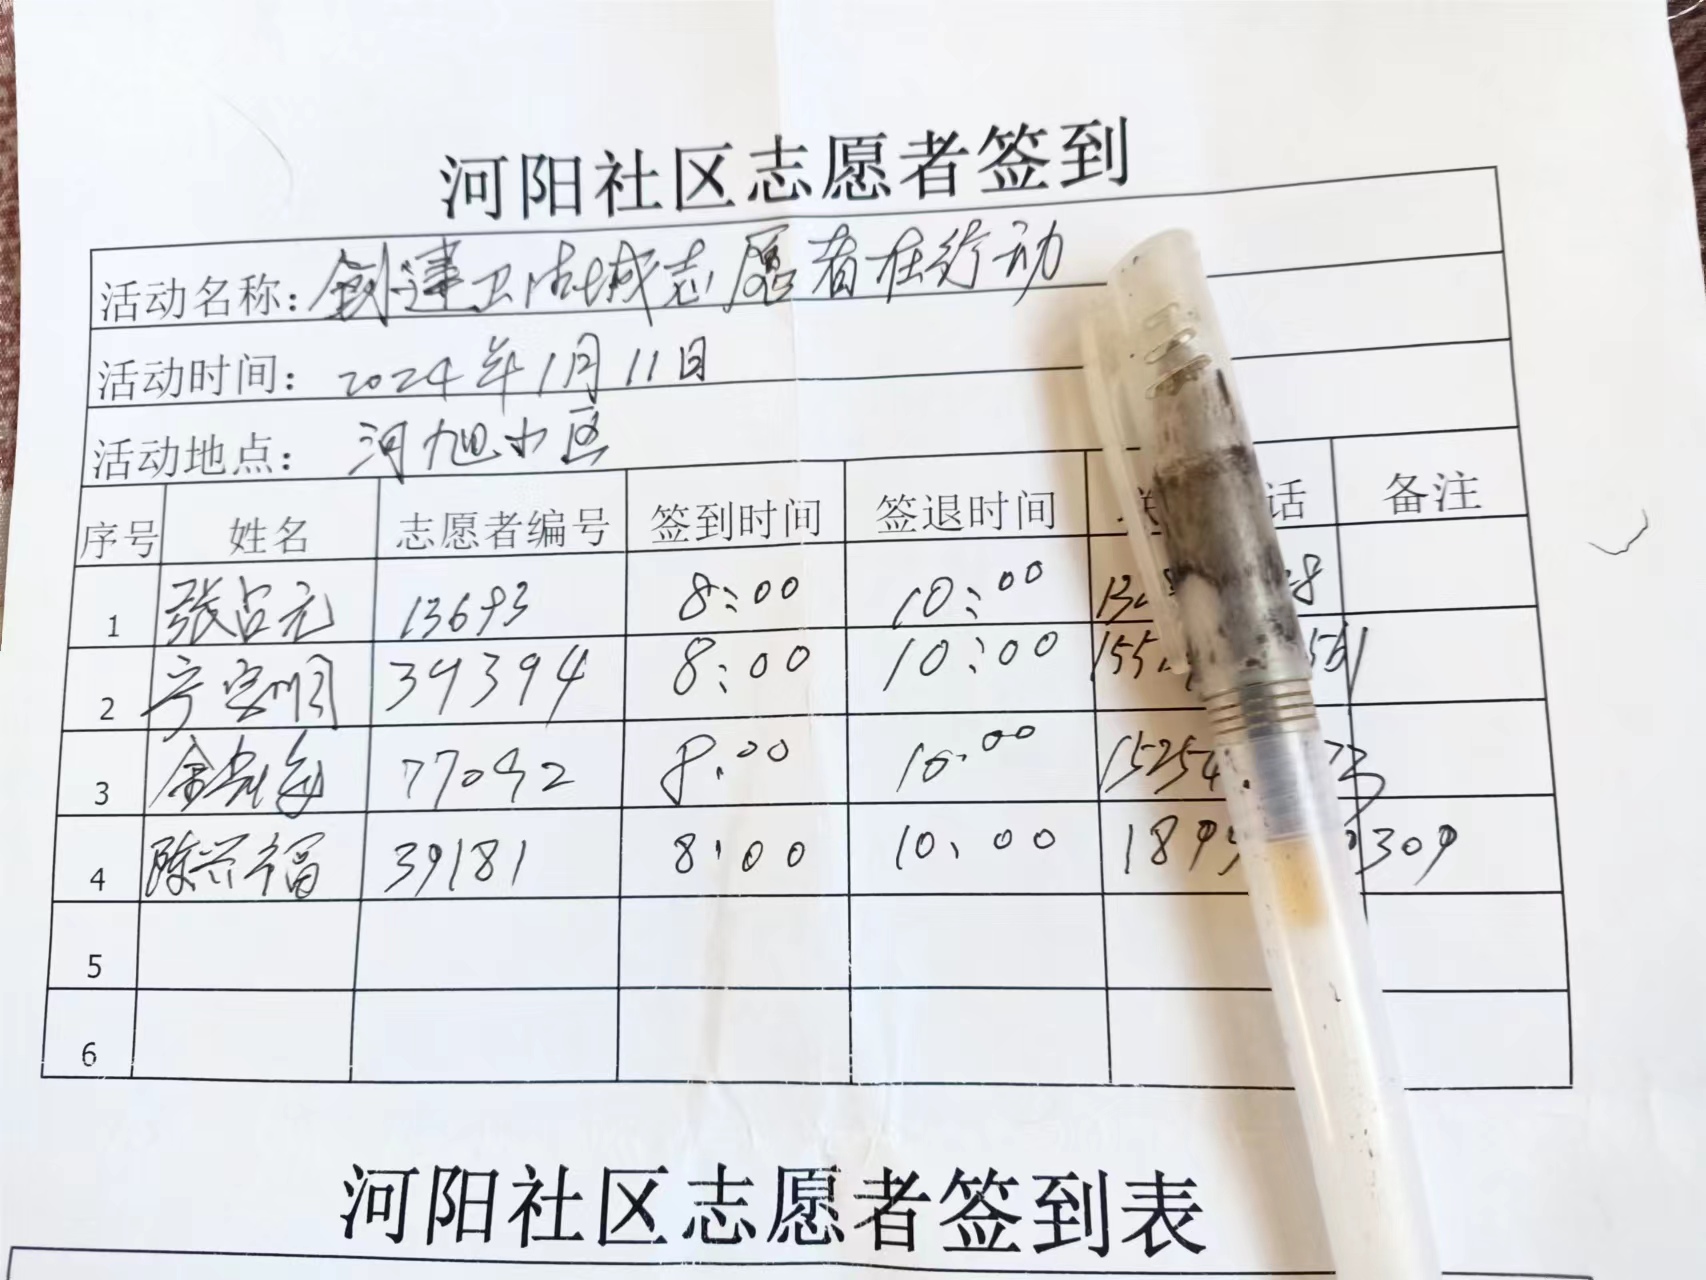 河阳社区志愿者签到
活动名称：创建卫生城志愿者在行动
活动时间：2024年1月11日
活动地点：河旭小区
序号 姓名 志愿者编号 签到时间 签退时间 话 备注
1 张占元 13693 8:00 10:00
2 39394 8:00 10:00
3 77092 8:00 10:00
4 陈兴福 39181 8:00 10:00
5
6
河阳社区志愿者签到表